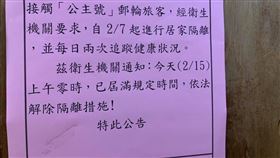 接觸「公主號」郵輪旅客，經衛生
機關要求，自 2/7 起進行居家隔離
，並每日兩次追蹤健康狀況。
茲衛生機關通知：今天(2/15)
上午零時，已屆滿規定時間，依法
解除隔離措施！
特此公告